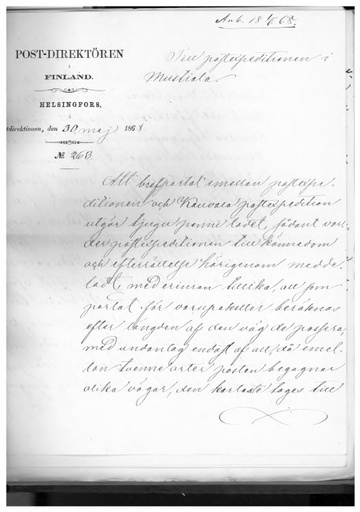 Ank. 18 6/6 68.
POST-DIREKTÖREN
i
FINLAND.
HELSINGFORS,
direktionen, den 30 maj 1868
№ 263.
Till postexpeditionen i
Mustiala.
Att brefportot emellan postexpe-
ditionen och Kauvola postexpedition
utgör tjugu penni lodet, sådant var-
der postexpeditionen till kännedom
och efterrättelse härigenom medde-
ladt, med erinran tillika, att
portot för varupaketter beräknas
efter längden af den väg de passera,
med undantag endast af att, då emel-
lan tvenne orter posten begagnar
olika vägar, den kortaste tages till